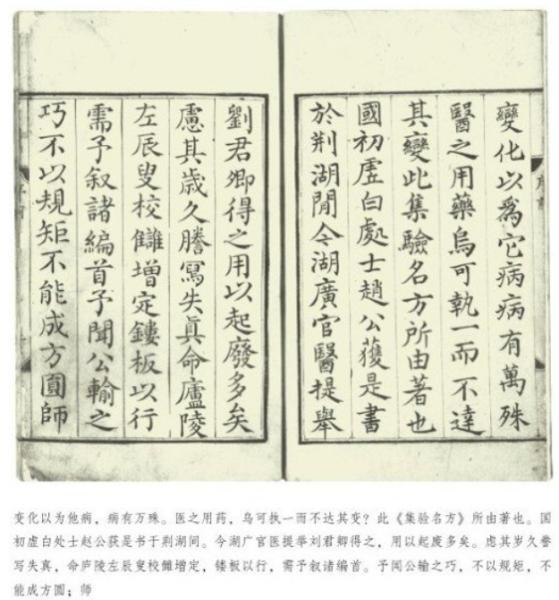 變化以爲它病病有萬殊
醫之用藥烏可執一而不達
其變此集驗名方所由著也
國初虛白處士趙公獲是書
於荆湖閒今湖廣官醫提舉
劉君卿得之用以起廢多矣
慮其歲久謄寫失眞命廬陵
左辰叟校讎增定鏤板以行
需予叙諸編首予聞公輸之
巧不以規矩不能成方圓師
变化以为他病，病有万殊。医之用药，乌可执一而不达其变？此《集验名方》所由著也。国
初虚白处士赵公获是书于荆湖间。今湖广官医提举刘君卿得之，用以起废多矣。虑其岁久誊
写失真，命庐陵左辰叟校雠增定，镂板以行，需予叙诸编首。予闻公输之巧，不以规矩，不
能成方圆；师